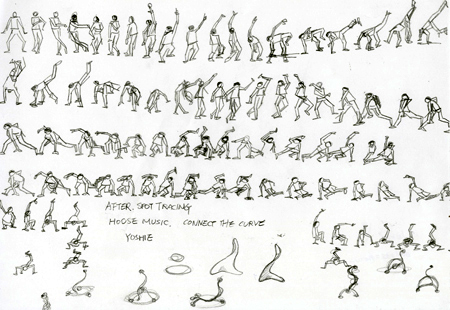 AFTER. SPOT TRACING
HOOSE MUSIC. CONNECT THE CURVE
YOSHIE